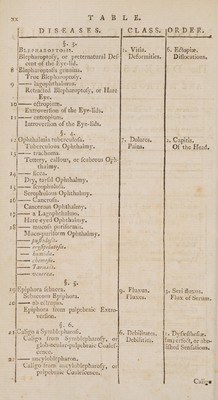 xx
TABLE.
DISEASES.
CLASS.
ORDER.
§. 3.
BLEPHAROPTOSIS.
Blepharoptosy, or preternatural Descent of the Eye-lid.
1. Vitia.
Deformities.
6. Ectopiæ.
Dislocations.
8 Blepharoptosis genuina.
True Blepharoptosy.
9 — lagophthalmus.
Retracted Blepharoptosy, or Hare Eye.
10 — ectropium.
Extroversion of the Eye-lids.
11 — entropium.
Introversion of the Eye-lids.
§. 4.
12 Ophthalmia tuberculosa.
Tuberculous Ophthalmy.
7. Dolores.
Pains.
2. Capitis.
Of the Head.
13 — trachoma.
Tettery, callous, or scabrous Ophthalmy.
14 — sicca.
Dry, tarsal Ophthalmy.
15 — scrophulosa.
Scrophulous Ophthalmy.
16 — Cancrosa.
Cancerous Ophthalmy.
17 — a Lagophthalmo.
Hare-eyed Ophthalmy.
18
Mucopuriform Ophthalmy.
— pustulosa.
— erysipelatosa.
— humida.
— chemosis.
— Taraxis.
§. 5.
19 Epiphora sebacea.
Sebaceous Epiphora.
9. Fluxus.
Fluxes.
3. Seri fluxus.
Flux of Serum.
20 — ab ectropio.
Epiphora from palpebral Extroversion.
§. 6.
21 Caligo a Symblepharosi.
Caligo from Symblepharosy, or
palpebral Coalescence.
6. Debilitates.
Debilities.
1. Dysæsthesiæ.
Imperfect, or abolished Sensations.
22 — ancyloblepharon.
Caligo from ancyloblepharosy, or palpebral Coalescence.
Caligo